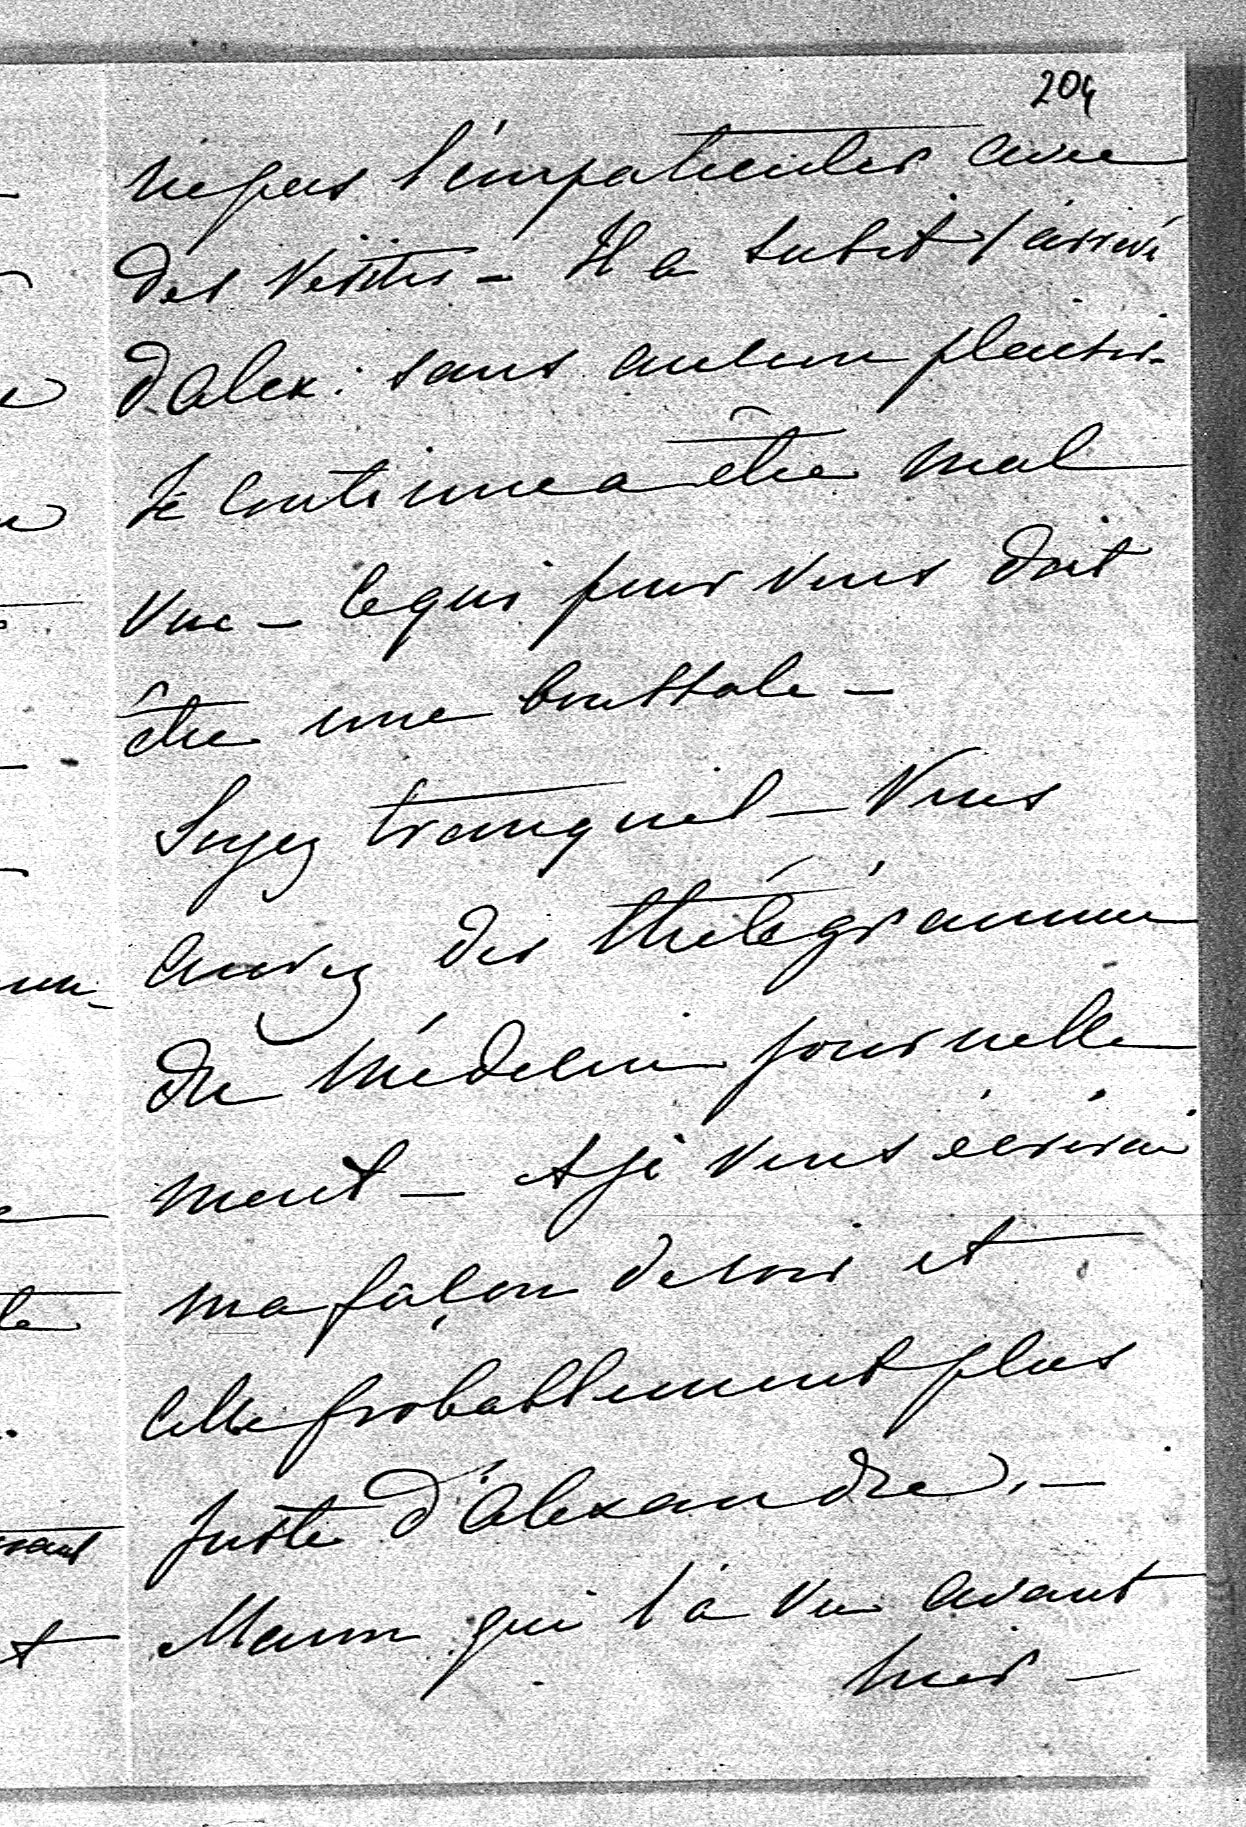 204
ne pas l'impatienter avec
des visites – Il a subit l'arrivé
d'Alex: sans aucun plaisir –
Je continue a être mal
vue – Ce qui pour vous doit
être une boussole –
Soyez tranquil – Vous
aurez des thélégrammes
du Médecin journelle
ment – et je vous écrirai
ma façon de voir et
celle probablement plus
juste d'Alexandre. –
Maman qui l'a vu avant
hier –